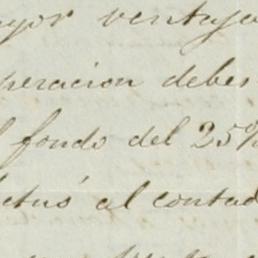 yor ventaja
peracion debes
l fondo del 25%
fectuó al contad